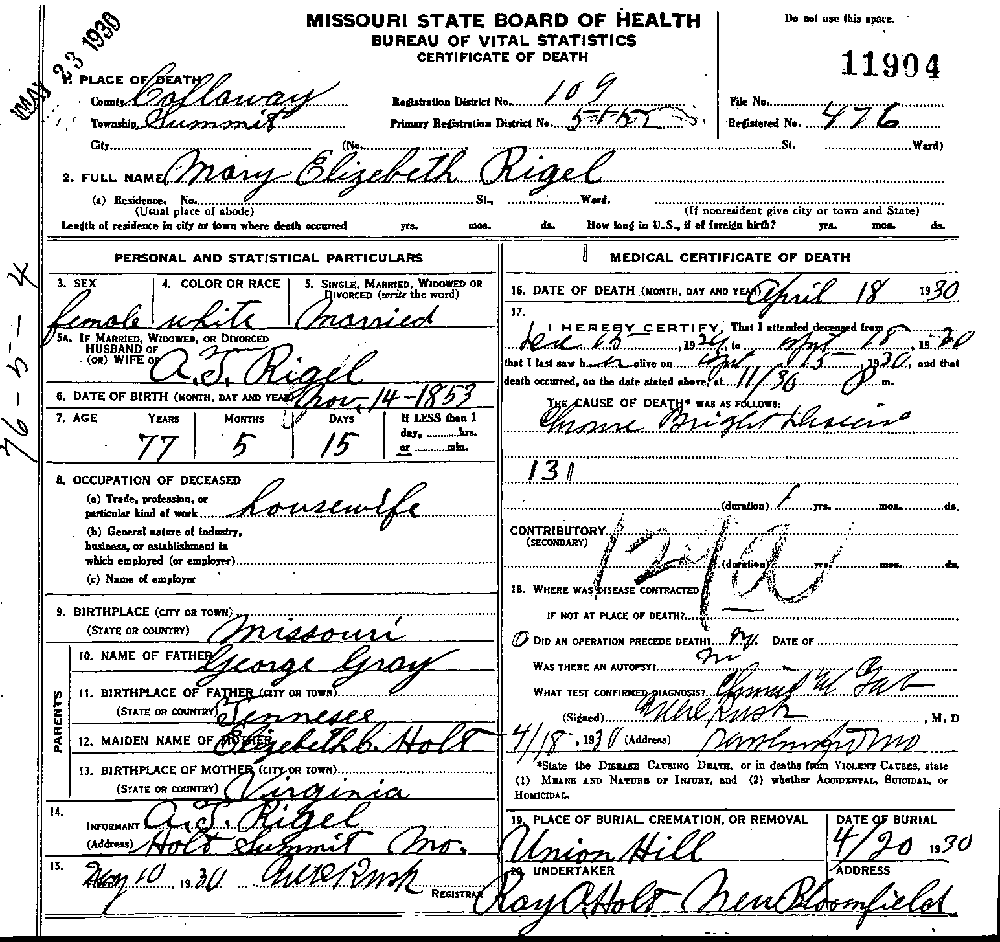 MAY 23 1930
MISSOURI STATE BOARD OF HEALTH
BUREAU OF VITAL STATISTICS
CERTIFICATE OF DEATH
Do not use this space.
11904
1. PLACE OF DEATH
County Callaway
Township Summit
City (No. St. Ward)
Registration District No. 109
Primary Registration District No.
File No.
Registered No. 476
2. FULL NAME Mary Elizebeth Rigel
(a) Residence. No. St., Ward.
(Usual place of abode) (If nonresident give city or town and State)
Length of residence in city or town where death occurred yrs. mos. ds. How long in U.S., if of foreign birth? yrs. mos. ds.
76-5-4
PERSONAL AND STATISTICAL PARTICULARS
3. SEX
female
4. COLOR OR RACE
white
5. SINGLE, MARRIED, WIDOWED OR DIVORCED (write the word)
Married
5A. IF MARRIED, WIDOWED, OR DIVORCED
HUSBAND OF
(OR) WIFE OF A.J. Rigel
6. DATE OF BIRTH (MONTH, DAY AND YEAR) Nov. 14-1853
7. AGE YEARS MONTHS DAYS If LESS than 1 day, hrs. or min.
77 5 15
8. OCCUPATION OF DECEASED
(a) Trade, profession, or
particular kind of work housewife
(b) General nature of industry,
business, or establishment in
which employed (or employer)
(c) Name of employer
9. BIRTHPLACE (CITY OR TOWN)
(STATE OR COUNTRY) Missouri
PARENTS
10. NAME OF FATHER George Gray
11. BIRTHPLACE OF FATHER (CITY OR TOWN)
(STATE OR COUNTRY) Tennesee
12. MAIDEN NAME OF MOTHER Elizebeth Holt
13. BIRTHPLACE OF MOTHER (CITY OR TOWN)
(STATE OR COUNTRY) Virginia
14.
INFORMANT A.J. Rigel
(Address) Holt Summit Mo.
15.
May 10 1930 Rush
REGISTRAR
MEDICAL CERTIFICATE OF DEATH
16. DATE OF DEATH (MONTH, DAY AND YEAR) April 18 1930
17.
I HEREBY CERTIFY, That I attended deceased from
Dec 15, 1929 to Apr 18, 1930
that I last saw h alive on Apr 15, 1930, and that
death occurred, on the date stated above, at 11/30 P m.
THE CAUSE OF DEATH* WAS AS FOLLOWS:
Chronic Bright Disease
131
(duration) 1 yrs. mos. ds.
CONTRIBUTORY
(SECONDARY)
(duration) yrs. mos. ds.
18. WHERE WAS DISEASE CONTRACTED
IF NOT AT PLACE OF DEATH?
DID AN OPERATION PRECEDE DEATH? no DATE OF
WAS THERE AN AUTOPSY? no
WHAT TEST CONFIRMED DIAGNOSIS?
(Signed) Rush, M. D
4/18, 1930 (Address) Mo
*State the DISEASE CAUSING DEATH, or in deaths from VIOLENT CAUSES, state
(1) MEANS AND NATURE OF INJURY, and (2) whether ACCIDENTAL, SUICIDAL, or
HOMICIDAL.
19. PLACE OF BURIAL, CREMATION, OR REMOVAL
Union Hill
DATE OF BURIAL
4/20 1930
20. UNDERTAKER
Ray Holt
ADDRESS
New Bloomfield